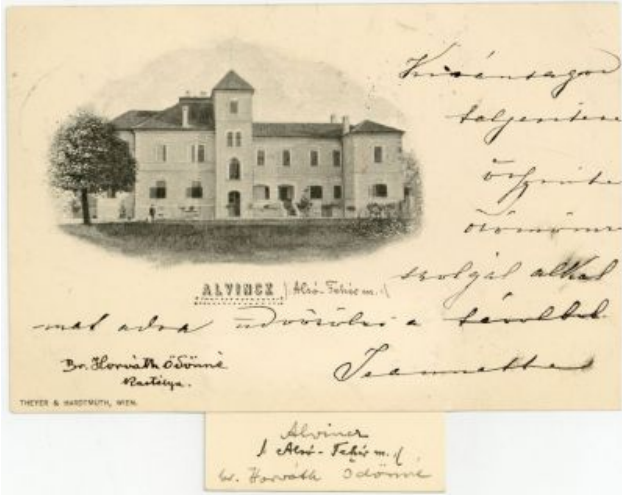 Kivánságod
teljesítése
őszinte
örömömre
szolgál alkal
mat adva üdvözölni a távolból
Jeannette
ALVINCZ (Alsó-Fehér m.)
Br. Horváth Ödönné
Kastélya.
THEYER & HARDTMUTH, WIEN.
Alvincz
(Alsó-Fehér m.)
br. Horváth Ödönné